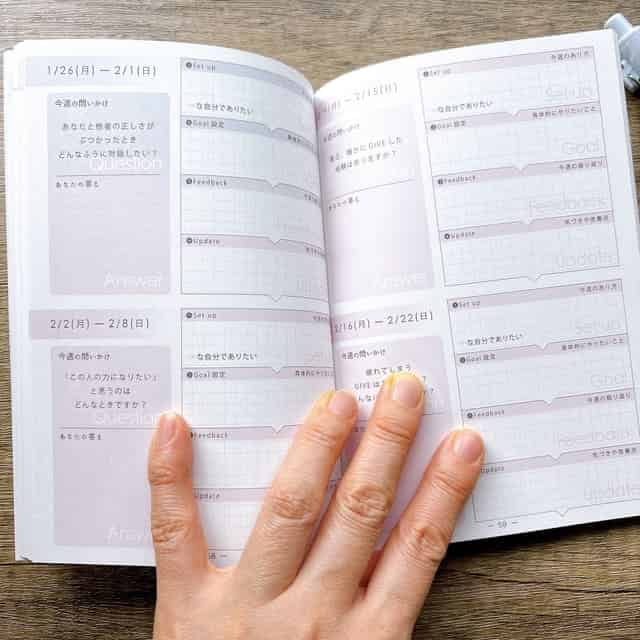 1/26(月) — 2/1(日)
今週の問いかけ
あなたと他者の正しさが
ぶつかったとき
どんなふうに対話したい？
Question
あなたの答え
Answer
❶Set up
…な自分でありたい
❷Goal 設定
❸Feedback
❹Update
2/2(月) — 2/8(日)
今週の問いかけ
「この人の力になりたい」
と思うのは
どんなときですか？
Question
あなたの答え
Answer
❶Set up
…な自分でありたい
❷Goal 設定
具体的にやりたいこと
Feedback
Update
(月) — 2/15(日)
今週の問いかけ
最近、誰かに GIVE した
経験は有りますか？
あなたの答え
Answer
❶Set up
今週のあり方
…な自分でありたい
Set up
❷Goal 設定
具体的にやりたいこと
Goal
❸Feedback
今週の振り返り
Feedback
❹Update
気づきや改善点
Update
2/16(月) — 2/22(日)
今週の問いかけ
疲れてしまう
GIVE は
❶Set up
今週のあり方
…な自分でありたい
Set up
❷Goal 設定
具体的にやりたいこと
Goal
❸Feedback
今週の振り返り
Feedback
❹Update
気づきや改善点
Update
— 59 —